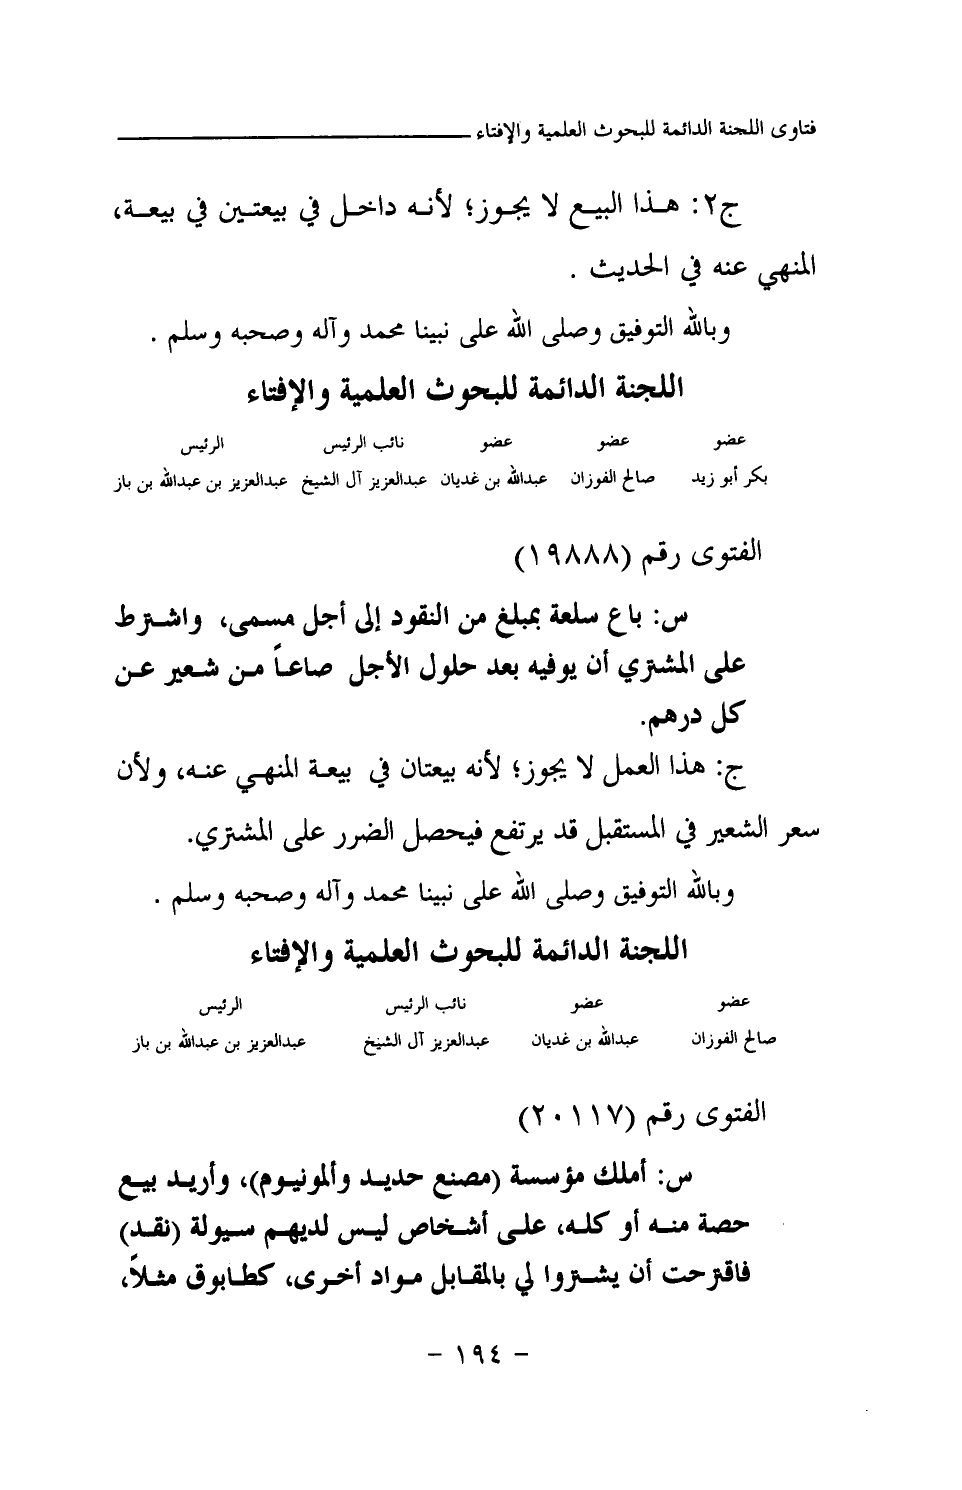 فتاوى اللجنة الدائمة للبحوث العلمية والإفتاء
ج٢: هذا البيع لا يجوز؛ لأنه داخل في بيعتين في بيعة،
المنهي عنه في الحديث .
وبالله التوفيق وصلى الله على نبينا محمد وآله وصحبه وسلم .
اللجنة الدائمة للبحوث العلمية والإفتاء
عضو عضو عضو نائب الرئيس الرئيس
بكر أبو زيد صالح الفوزان عبدالله بن غديان عبدالعزيز آل الشيخ عبدالعزيز بن عبدالله بن باز
الفتوى رقم (١٩٨٨٨)
س: باع سلعة بمبلغ من النقود إلى أجل مسمى، واشترط
على المشتري أن يوفيه بعد حلول الأجل صاعاً من شعير عن
كل درهم.
ج: هذا العمل لا يجوز؛ لأنه بيعتان في بيعة المنهي عنه، ولأن
سعر الشعير في المستقبل قد يرتفع فيحصل الضرر على المشتري.
وبالله التوفيق وصلى الله على نبينا محمد وآله وصحبه وسلم .
اللجنة الدائمة للبحوث العلمية والإفتاء
عضو عضو نائب الرئيس الرئيس
صالح الفوزان عبدالله بن غديان عبدالعزيز آل الشيخ عبدالعزيز بن عبدالله بن باز
الفتوى رقم (٢٠١١٧)
س: أملك مؤسسة (مصنع حديد وألمونيوم)، وأريد بيع
حصة منه أو كله، على أشخاص ليس لديهم سيولة (نقد)
فاقترحت أن يشتروا لي بالمقابل مواد أخرى، كطابوق مثلاً،
- ١٩٤ -